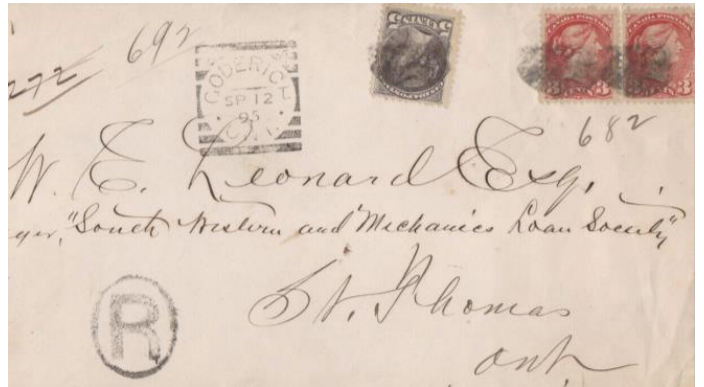 692
272
GODERICH
SP 12
95
ONT.
682
W. E. Leonard Esq.
"South Western and Mechanics Loan Society"
St. Thomas
Ont
R